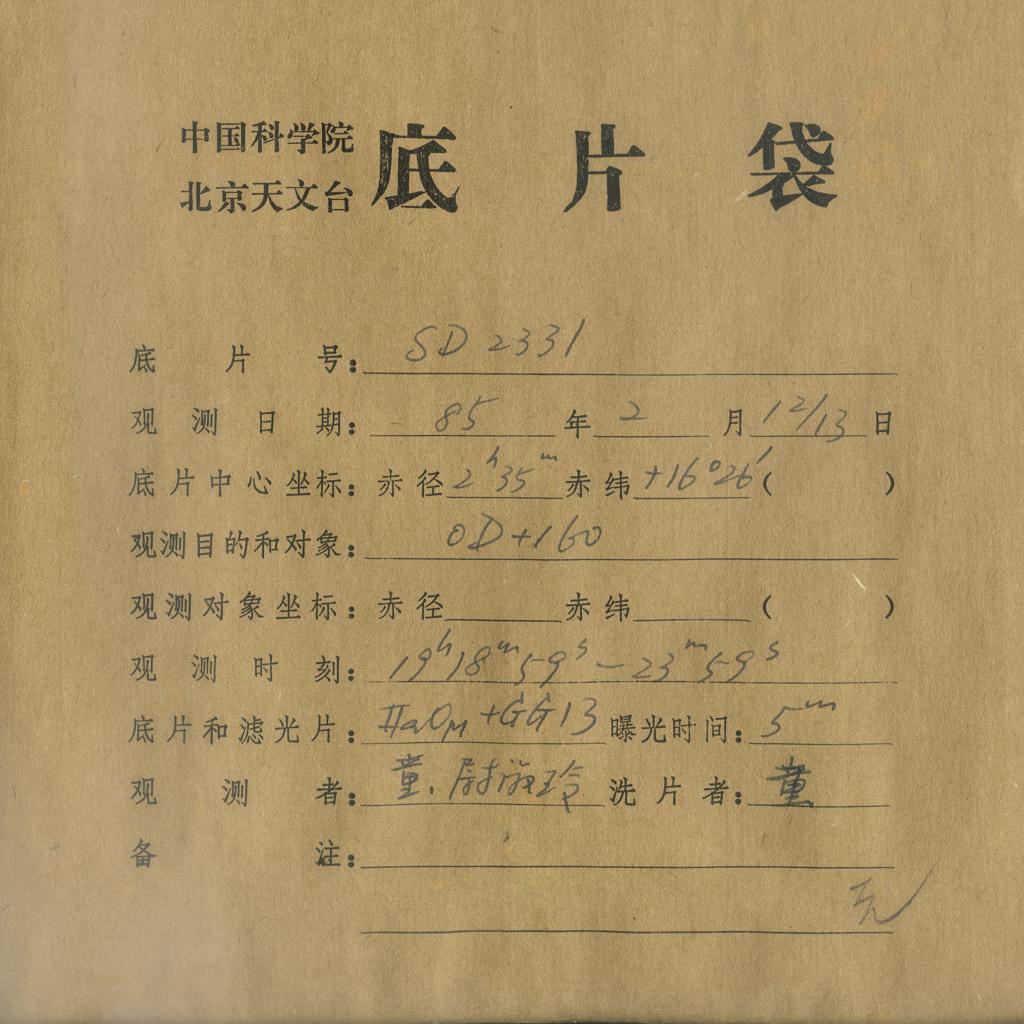 中国科学院
北京天文台
底片袋
底片号: SD 2331
观测日期: 85年2月12/13日
底片中心坐标: 赤径 2h35m 赤纬 +16°26′ ( )
观测目的和对象: OD+160
观测对象坐标: 赤径 赤纬 ( )
观测时刻: 19h18m59s — 23m59s
底片和滤光片: IIaO +GG13 曝光时间: 5m
观测者: 童. 洗片者: 童
备注: